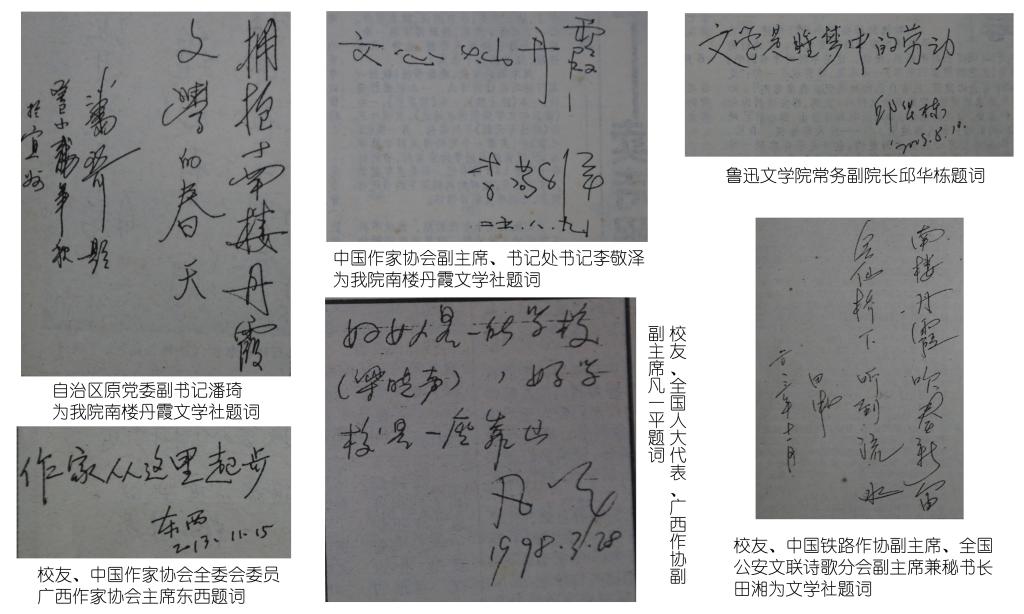 拥抱南楼丹霞
文學的春天
潘琦题
於宜州
自治区原党委副书记潘琦
为我院南楼丹霞文学社题词
作家从这里起步
东西
2013.11.15
校友、中国作家协会全委会委员
广西作家协会主席东西题词
文心如丹霞
李敬泽
中国作家协会副主席、书记处书记李敬泽
为我院南楼丹霞文学社题词
好女人是一所学校
(梁晓声),好学
校是一座靠山
凡一平
1998.3.28
校友、全国人大代表、广西作协副
副主席凡一平题词
文学是睡梦中的劳动
邱华栋
鲁迅文学院常务副院长邱华栋题词
南楼丹霞吹
会仙桥下听到流水
田湘
二〇一三年十一月
校友、中国铁路作协副主席、全国
公安文联诗歌分会副主席兼秘书长
田湘为文学社题词